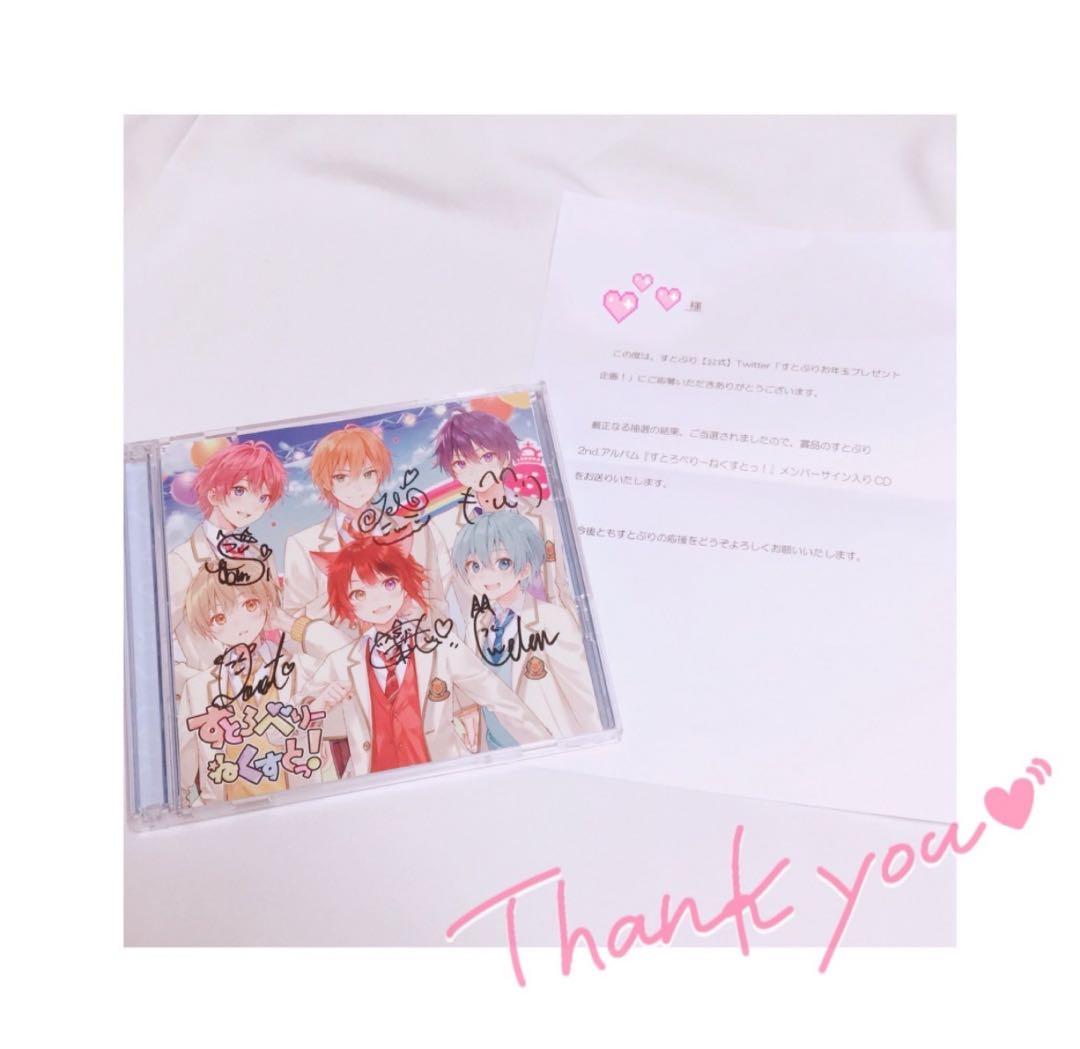 様
この度は、すとぷり【公式】Twitter「すとぷりお年玉プレゼント
企画！」にご応募いただきありがとうございます。
厳正なる抽選の結果、ご当選されましたので、賞品のすとぷり
2nd.アルバム『すとろべりーねくすとっ！』メンバーサイン入りCD
をお送りいたします。
今後ともすとぷりの応援をどうぞよろしくお願いいたします。
すとろべりー
ねくすとっ!
Thank you